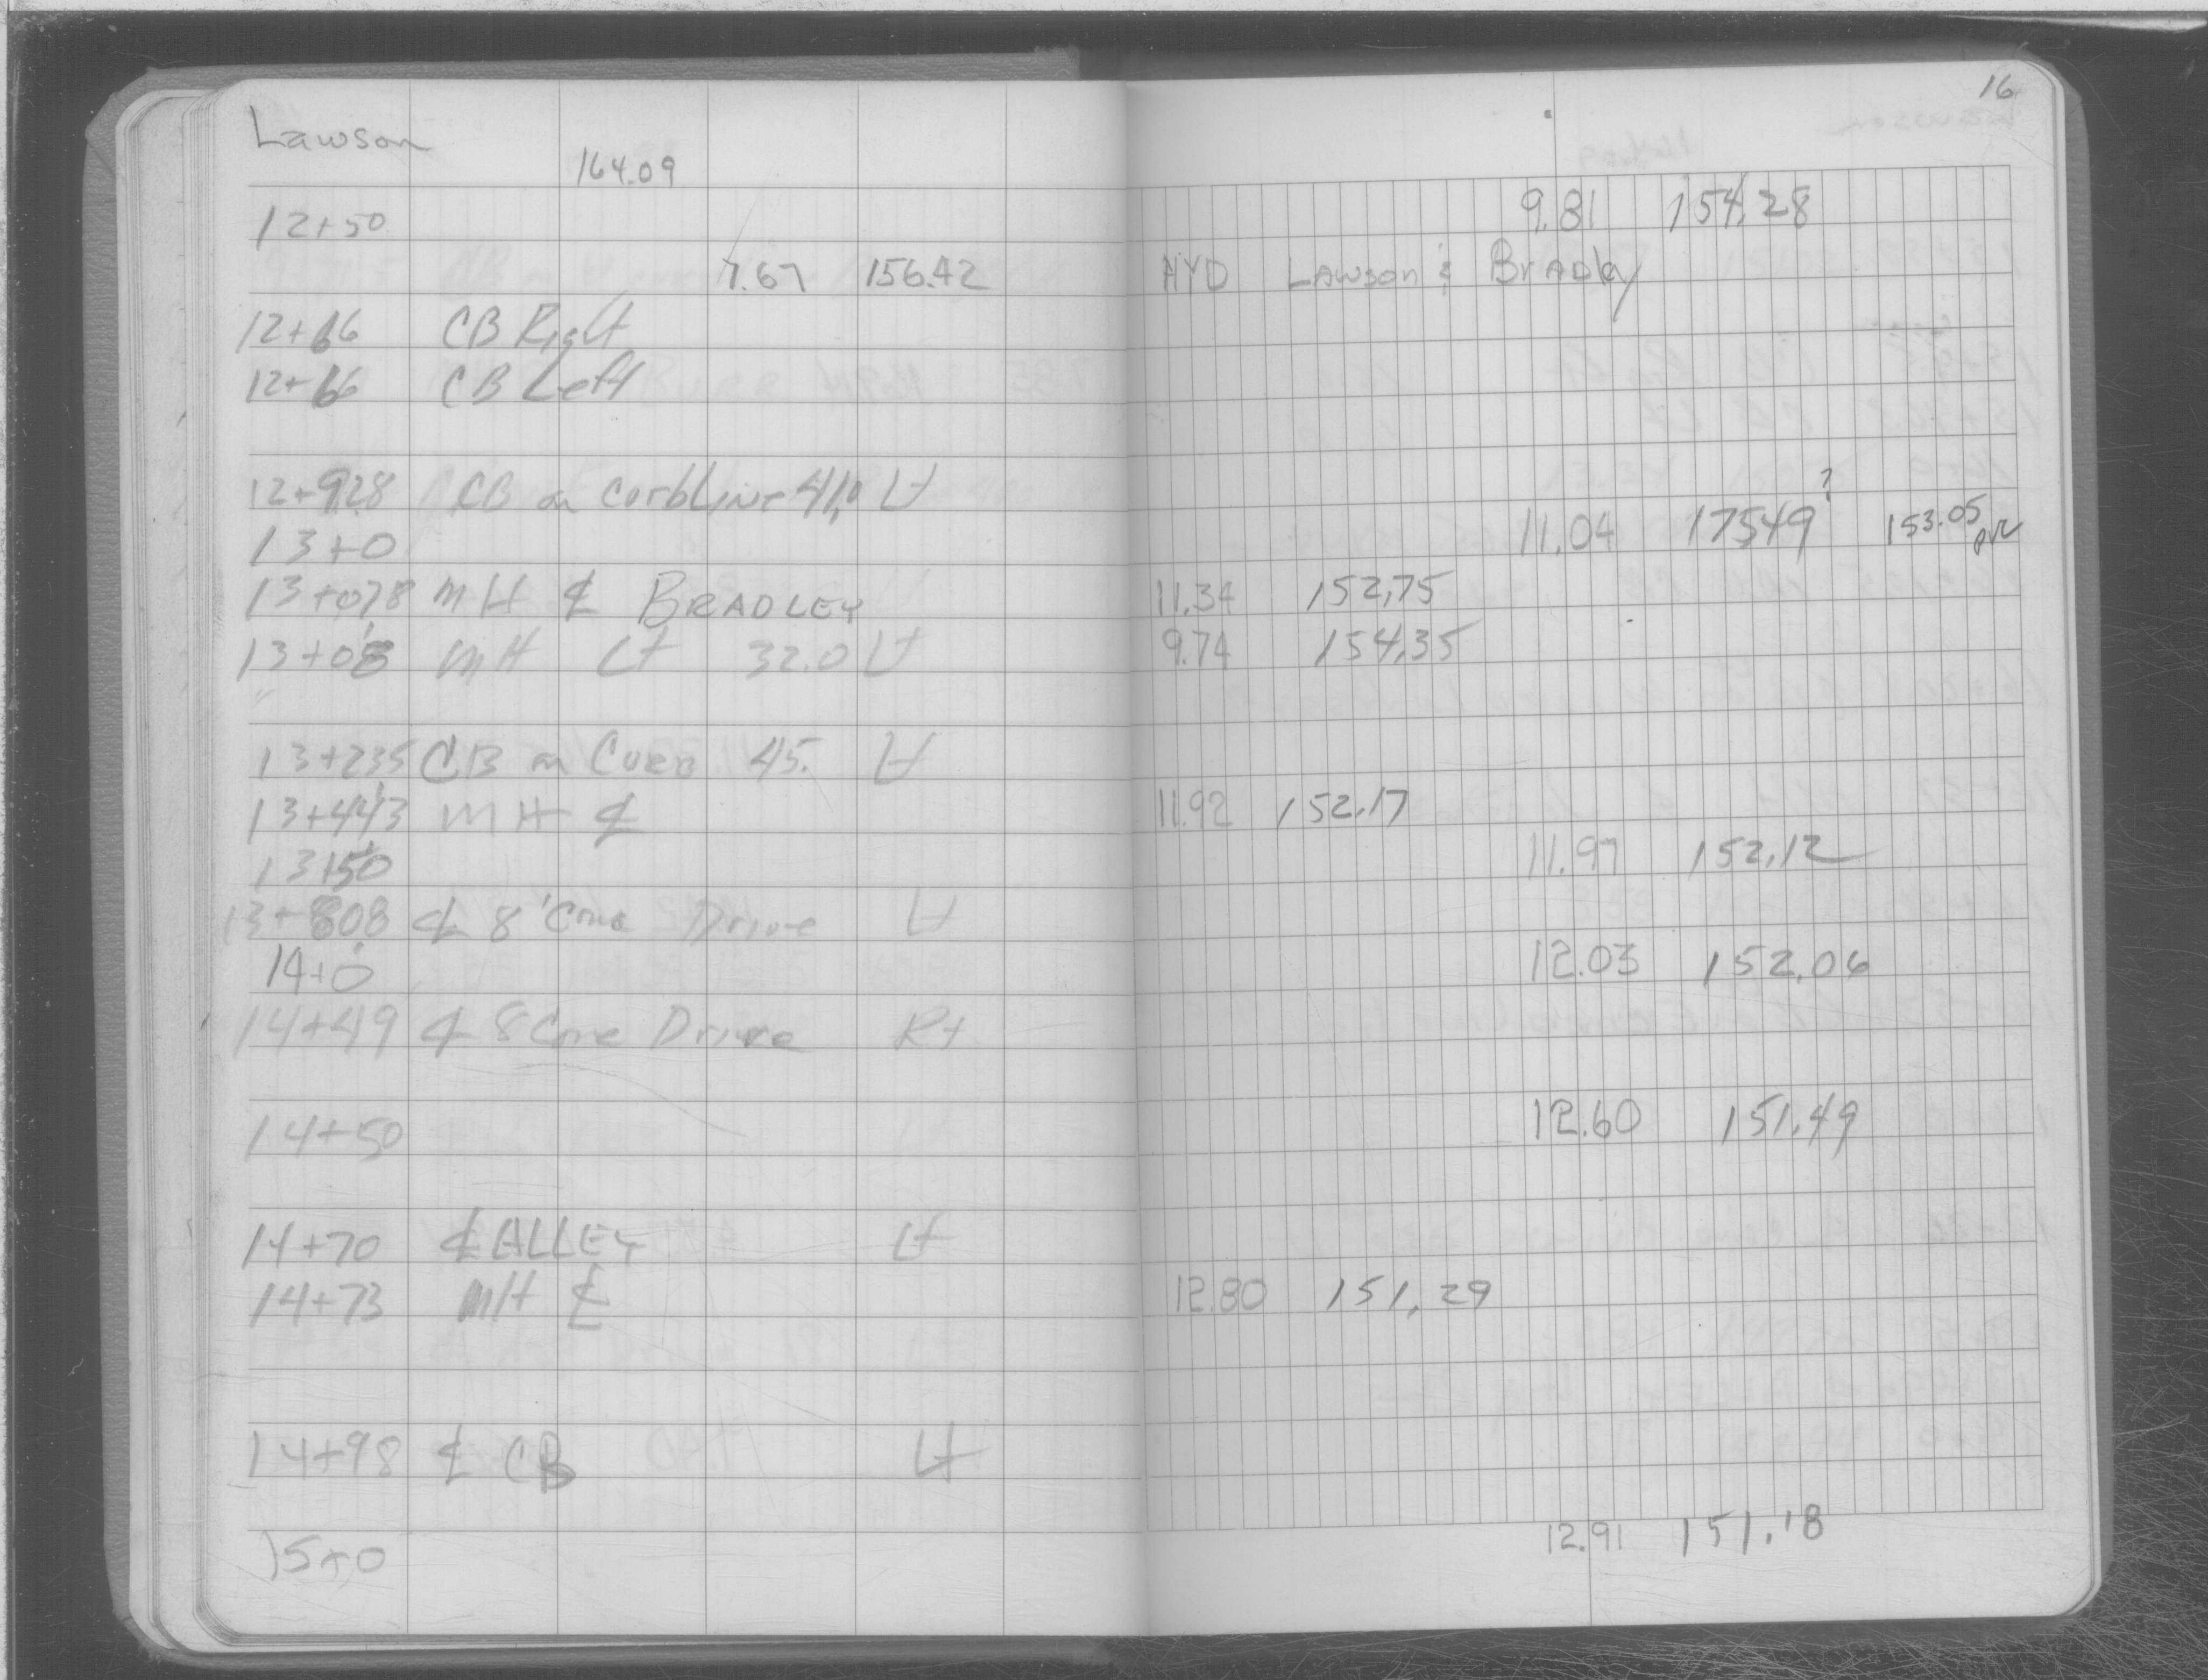 16
Lawson
164.09
12+50 9.81 154.28
7.67 156.42 HYD Lawson & Bradley
12+66 CB Right
12+66 CB Left
12+92.8 CB on CurbLine 41.0 Lt
13+0 11.04 17549? 153.05
13+07.8 MH ℄ BRADLEY 11.34 152.75
13+08 MH Lt 32.0 Lt 9.74 154.35
13+23.5 CB on Curb 45. Lt
13+44.3 MH ℄ 11.92 152.17
13+50 11.97 152.12
13+80.8 ℄ 8' Conc Drive Lt
14+0 12.03 152.06
14+49 ℄ 8 Conc Drive Rt
14+50 12.60 151.49
14+70 ℄ ALLEY Lt
14+73 MH ℄ 12.80 151.29
14+98 ℄ CB Lt
15+0 12.91 151.18